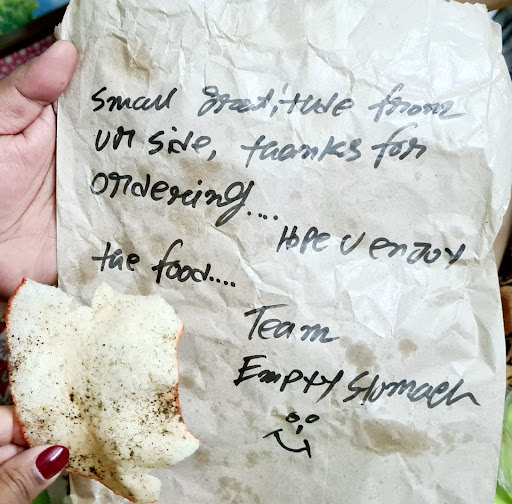 small gratitude from
ur side, thanks for
ordering....
Hope u enjoy
the food....
Team
Empty Stomach